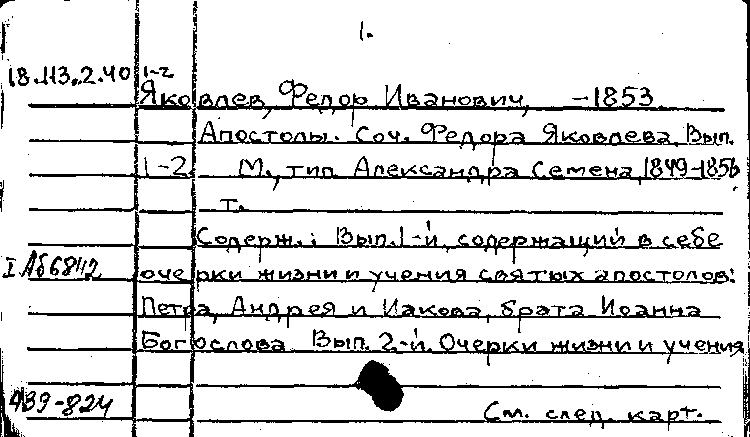 1.
18.113.2.40 1-2
Яковлев, Федор Иванович, -1853.
Апостолы. Соч. Федора Яковлева. Вып.
1-2. М., тип. Александра Семена, 1849-1856
т.
Содерж.: Вып. 1-й, содержащий в себе
I Аб 68/12 очерки жизни и учения святых апостолов:
Петра, Андрея и Иакова, брата Иоанна
Богослова. Вып. 2-й. Очерки жизни и учения
439-824 См. след. карт.